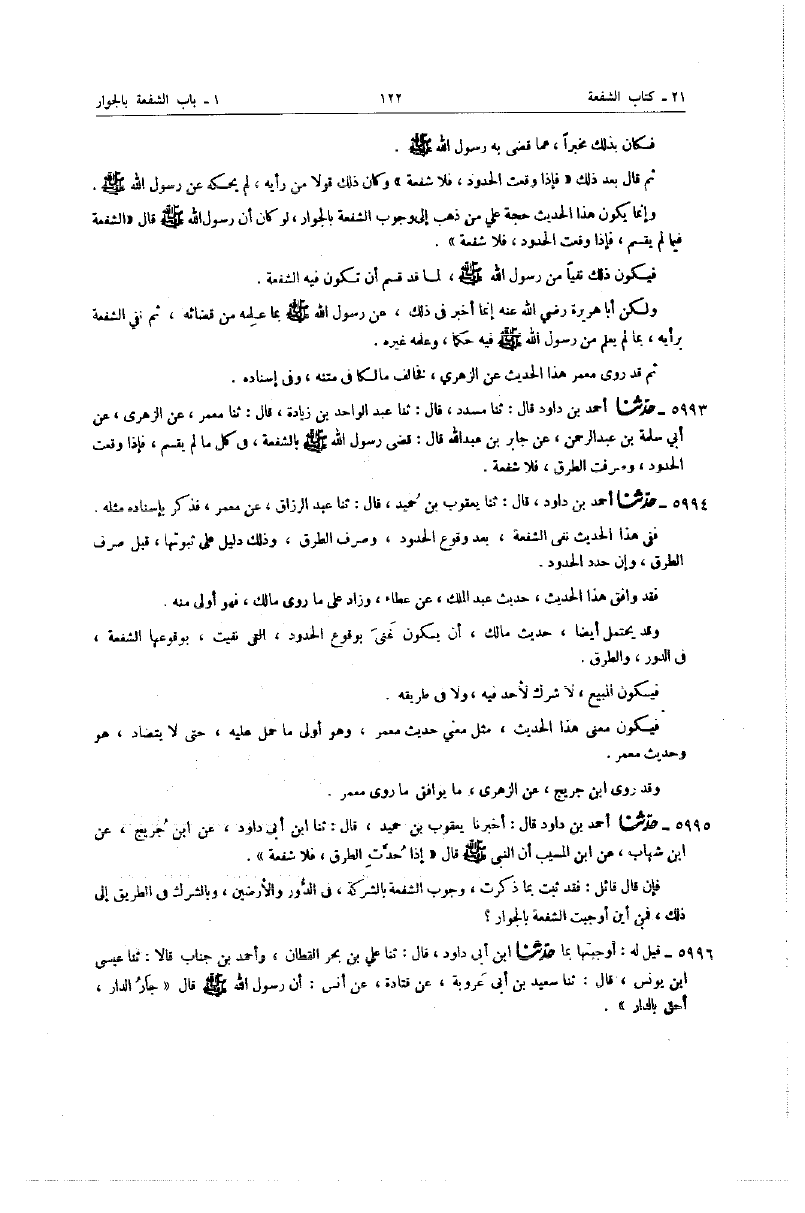 ٢١ ـ كتاب الشفعة ١٢٢ ١ ـ باب الشفعة بالجوار
فكان بذلك مخبراً ، مما قضى به رسول الله ﷺ .
ثم قال بعد ذلك « فإذا وقعت الحدود ، فلا شفعة » وكان ذلك قولا من رأيه ، لم يحكه عن رسول الله ﷺ .
وإنما يكون هذا الحديث حجة علي من ذهب إلى وجوب الشفعة بالجوار ، لو كان أن رسول الله ﷺ قال «الشفعة
فيما لم يقسم ، فإذا وقعت الحدود ، فلا شفعة » .
فيكون ذلك نفياً من رسول الله ﷺ ، لما قد قسم أن تكون فيه الشفعة .
ولكن أبا هريرة رضي الله عنه إنما أخبر فى ذلك ، عن رسول الله ﷺ بما علمه من قضائه ، ثم نفي الشفعة
برأيه ، بما لم يعلم من رسول الله ﷺ فيه حكما ، وعلمه غيره .
ثم قد روى معمر هذا الحديث عن الزهري ، فخالف مالكا فى متنه ، وفى إسناده .
٥٩٩٣ ـ حدّثنا أحمد بن داود قال : ثنا مسدد ، قال : ثنا عبد الواحد بن زيادة ، قال : ثنا معمر ، عن الزهرى ، عن
أبي سلمة بن عبدالرحمن ، عن جابر بن عبدالله قال : قضى رسول الله ﷺ بالشفعة ، فى كل ما لم يقسم ، فإذا وقعت
الحدود ، وصرفت الطرق ، فلا شفعة .
٥٩٩٤ ـ حدّثنا أحمد بن داود ، قال : ثنا يعقوب بن حُميد ، قال : ثنا عبد الرزاق ، عن معمر ، فذكر بإسناده مثله .
ففى هذا الحديث نفى الشفعة ، بعد وقوع الحدود ، وصرف الطرق ، وذلك دليل على ثبوتها ، قبل صرف
الطرق ، وإن حدد الحدود .
فقد وافق هذا الحديث ، حديث عبد الملك ، عن عطاء ، وزاد على ما روى مالك ، فهو أولى منه .
وقد يحتمل أيضا ، حديث مالك ، أن يكون عَنَى بوقوع الحدود ، التى نفيت ، بوقوعها الشفعة ،
فى الدور ، والطرق .
فيكون المبيع ، لا شرك لأحد فيه ، ولا فى طريقه .
فيكون معنى هذا الحديث ، مثل معني حديث معمر ، وهو أولى ما حمل عليه ، حتى لا يتضاد ، هو
وحديث معمر .
وقد روى ابن جريج ، عن الزهرى ، ما يوافق ما روى معمر .
٥٩٩٥ ـ حدّثنا أحمد بن داود قال : أخبرنا يعقوب بن حميد ، قال : ثنا ابن أبى داود ، عن ابن جُريج ، عن
ابن شهاب ، عن ابن المسيب أن النبى ﷺ قال « إذا حُدّتِ الطرق ، فلا شفعة » .
فإن قال قائل : فقد ثبت بما ذكرت ، وجوب الشفعة بالشركة ، فى الدُّور والأرضين ، وبالشرك فى الطريق إلى
ذلك ، فمن أين أوجبت الشفعة بالجوار ؟
٥٩٩٦ ـ قيل له : أوجبتها بما حدّثنا ابن أبى داود ، قال : ثنا علي بن بحر القطان ، وأحمد بن جناب قالا : ثنا عيسى
ابن يونس ، قال : ثنا سعيد بن أبى عَروبة ، عن قتادة ، عن أنس : أن رسول الله ﷺ قال « جَارُ الدار ،
أحق بالدار » .